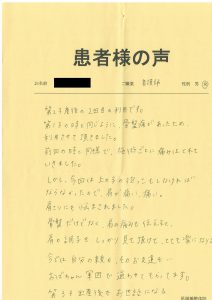 患者様の声
お名前 ご職業 看護師 性別 男 女
第2子産後の2回目の利用です。
第1子の時と同じように、骨盤痛があったため、
利用させて頂きました。
前回の時と同様で、施術ごとに痛みはとれて
いきました。
しかし、今回は上の子の抱っこもしなければ
ならなかったので、肩が痛い、痛い。
肩こりにも悩まされました。
骨盤だけでなく、肩の痛みも伝えると、
肩の調子をしっかり見て頂けて、とても楽になり
今では自分の親も、そのお友達も
おばちゃん軍団で通わせてもらってます。
第3子出産後もお世話になる